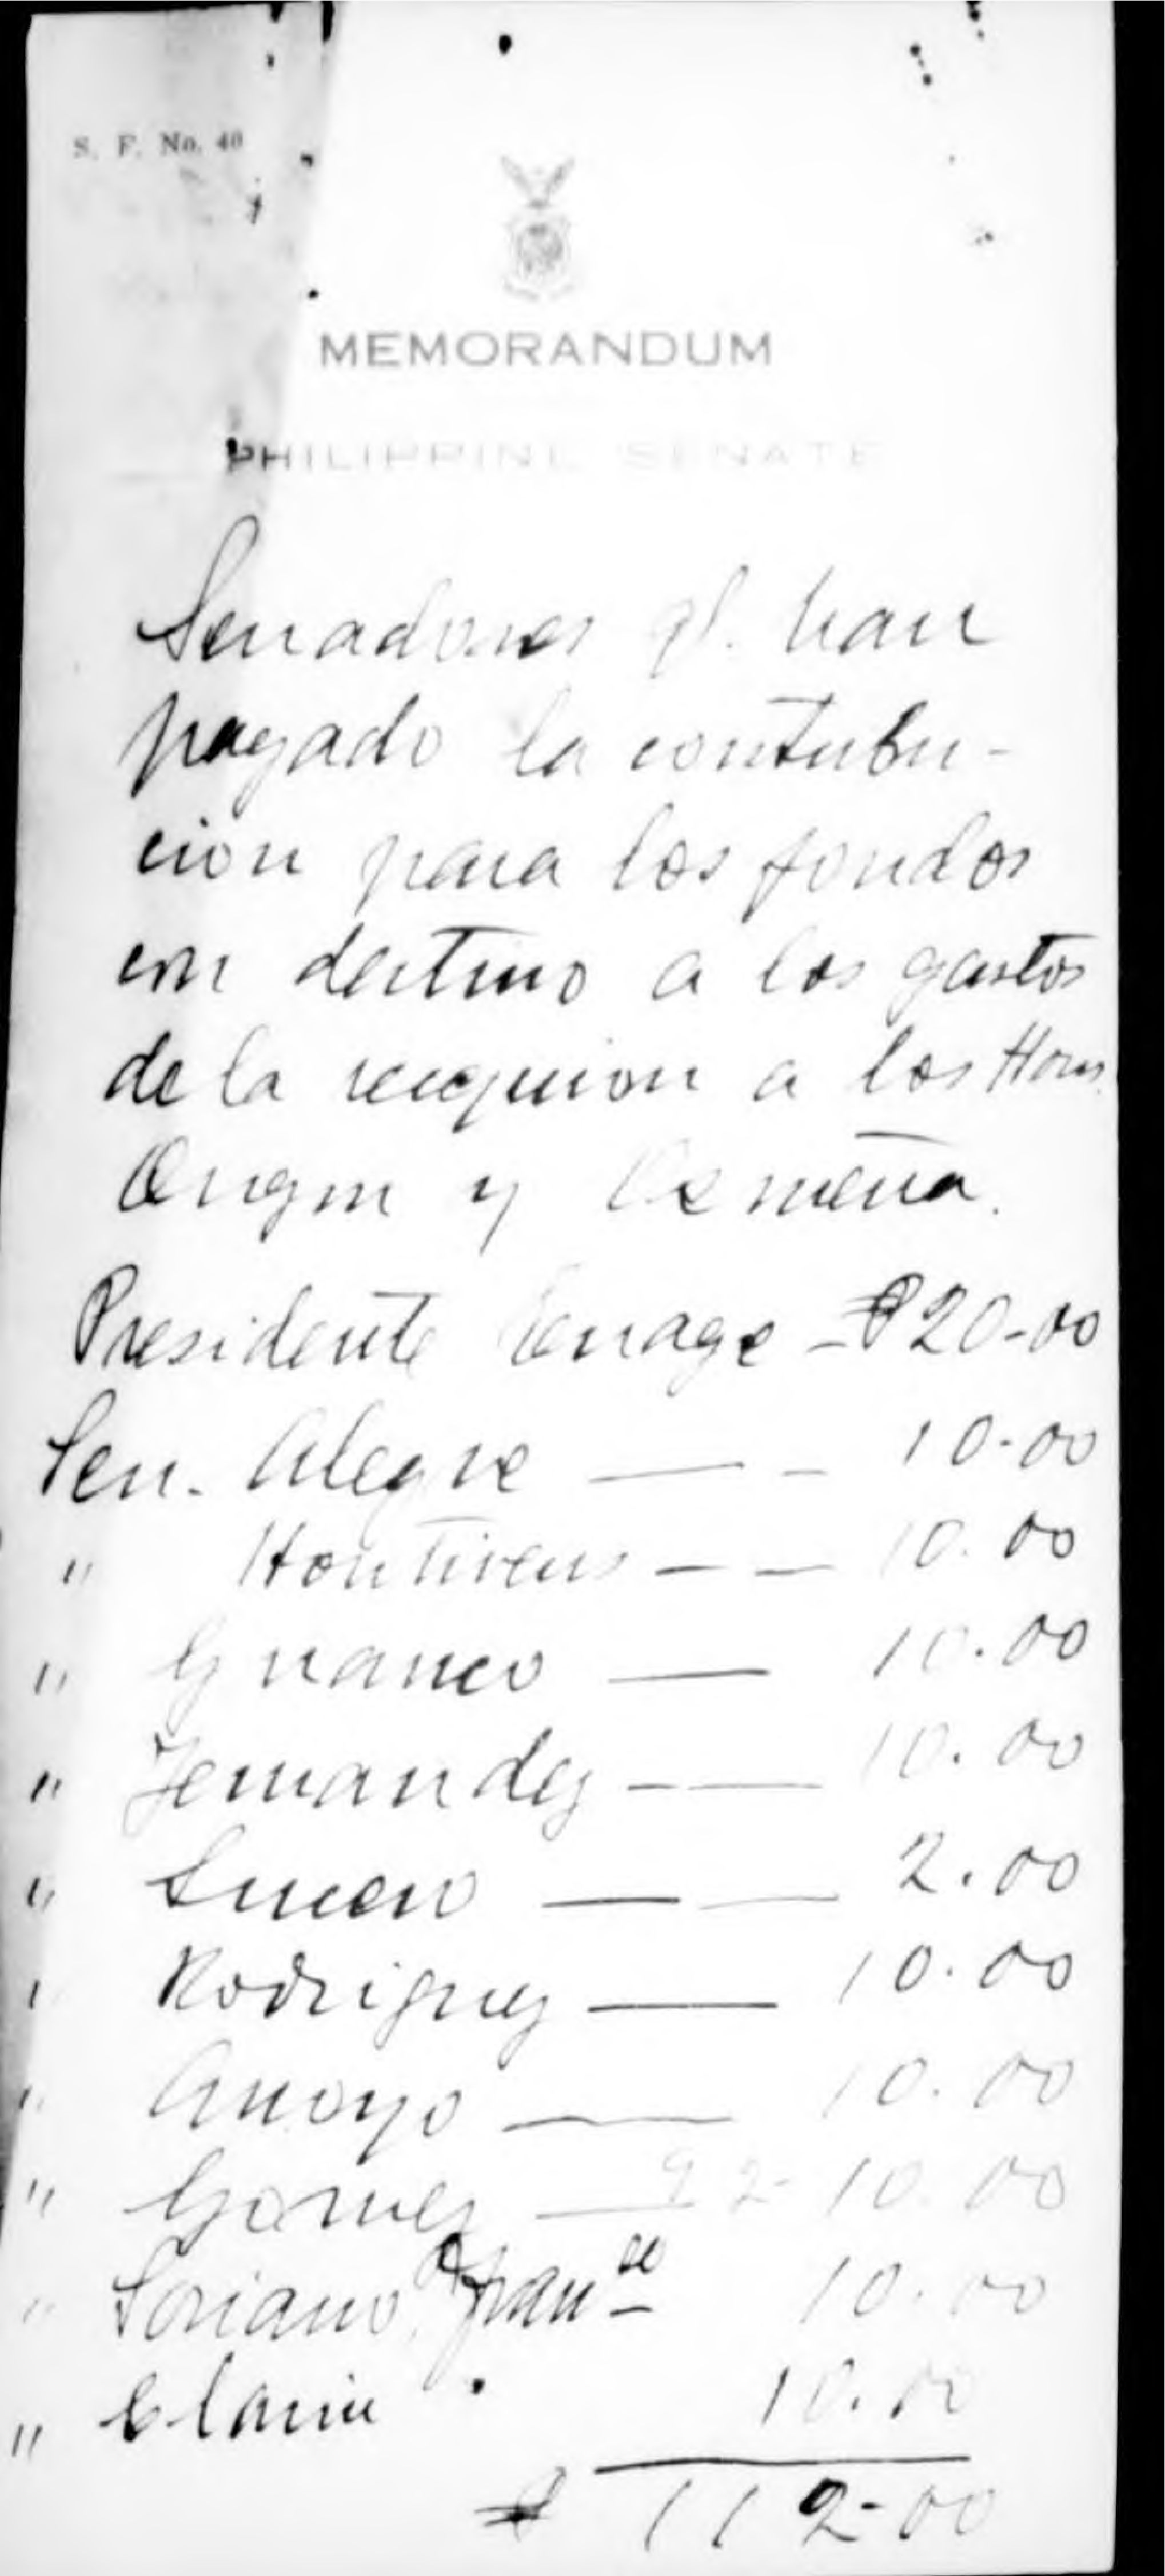 S. F. No. 40
MEMORANDUM
PHILIPPINE SENATE
Senadores q. han
pagado la contribu-
cion para los fondos
con destino a los gastos
de la recepcion a los Hons.
y Osmeña.
Presidente Enage - ₱20-00
Sen. Alegre — - 10-00
" Hontiveros - — 10.00
" Guanco — 10.00
" Fernandez - — 10.00
" Sueco — — 2.00
" Rodriguez — 10.00
" Arroyo — 10.00
" Gomez — 92- 10.00
" Soriano, Fran co 10.00
" Clarin 10.00
₱ 112-00